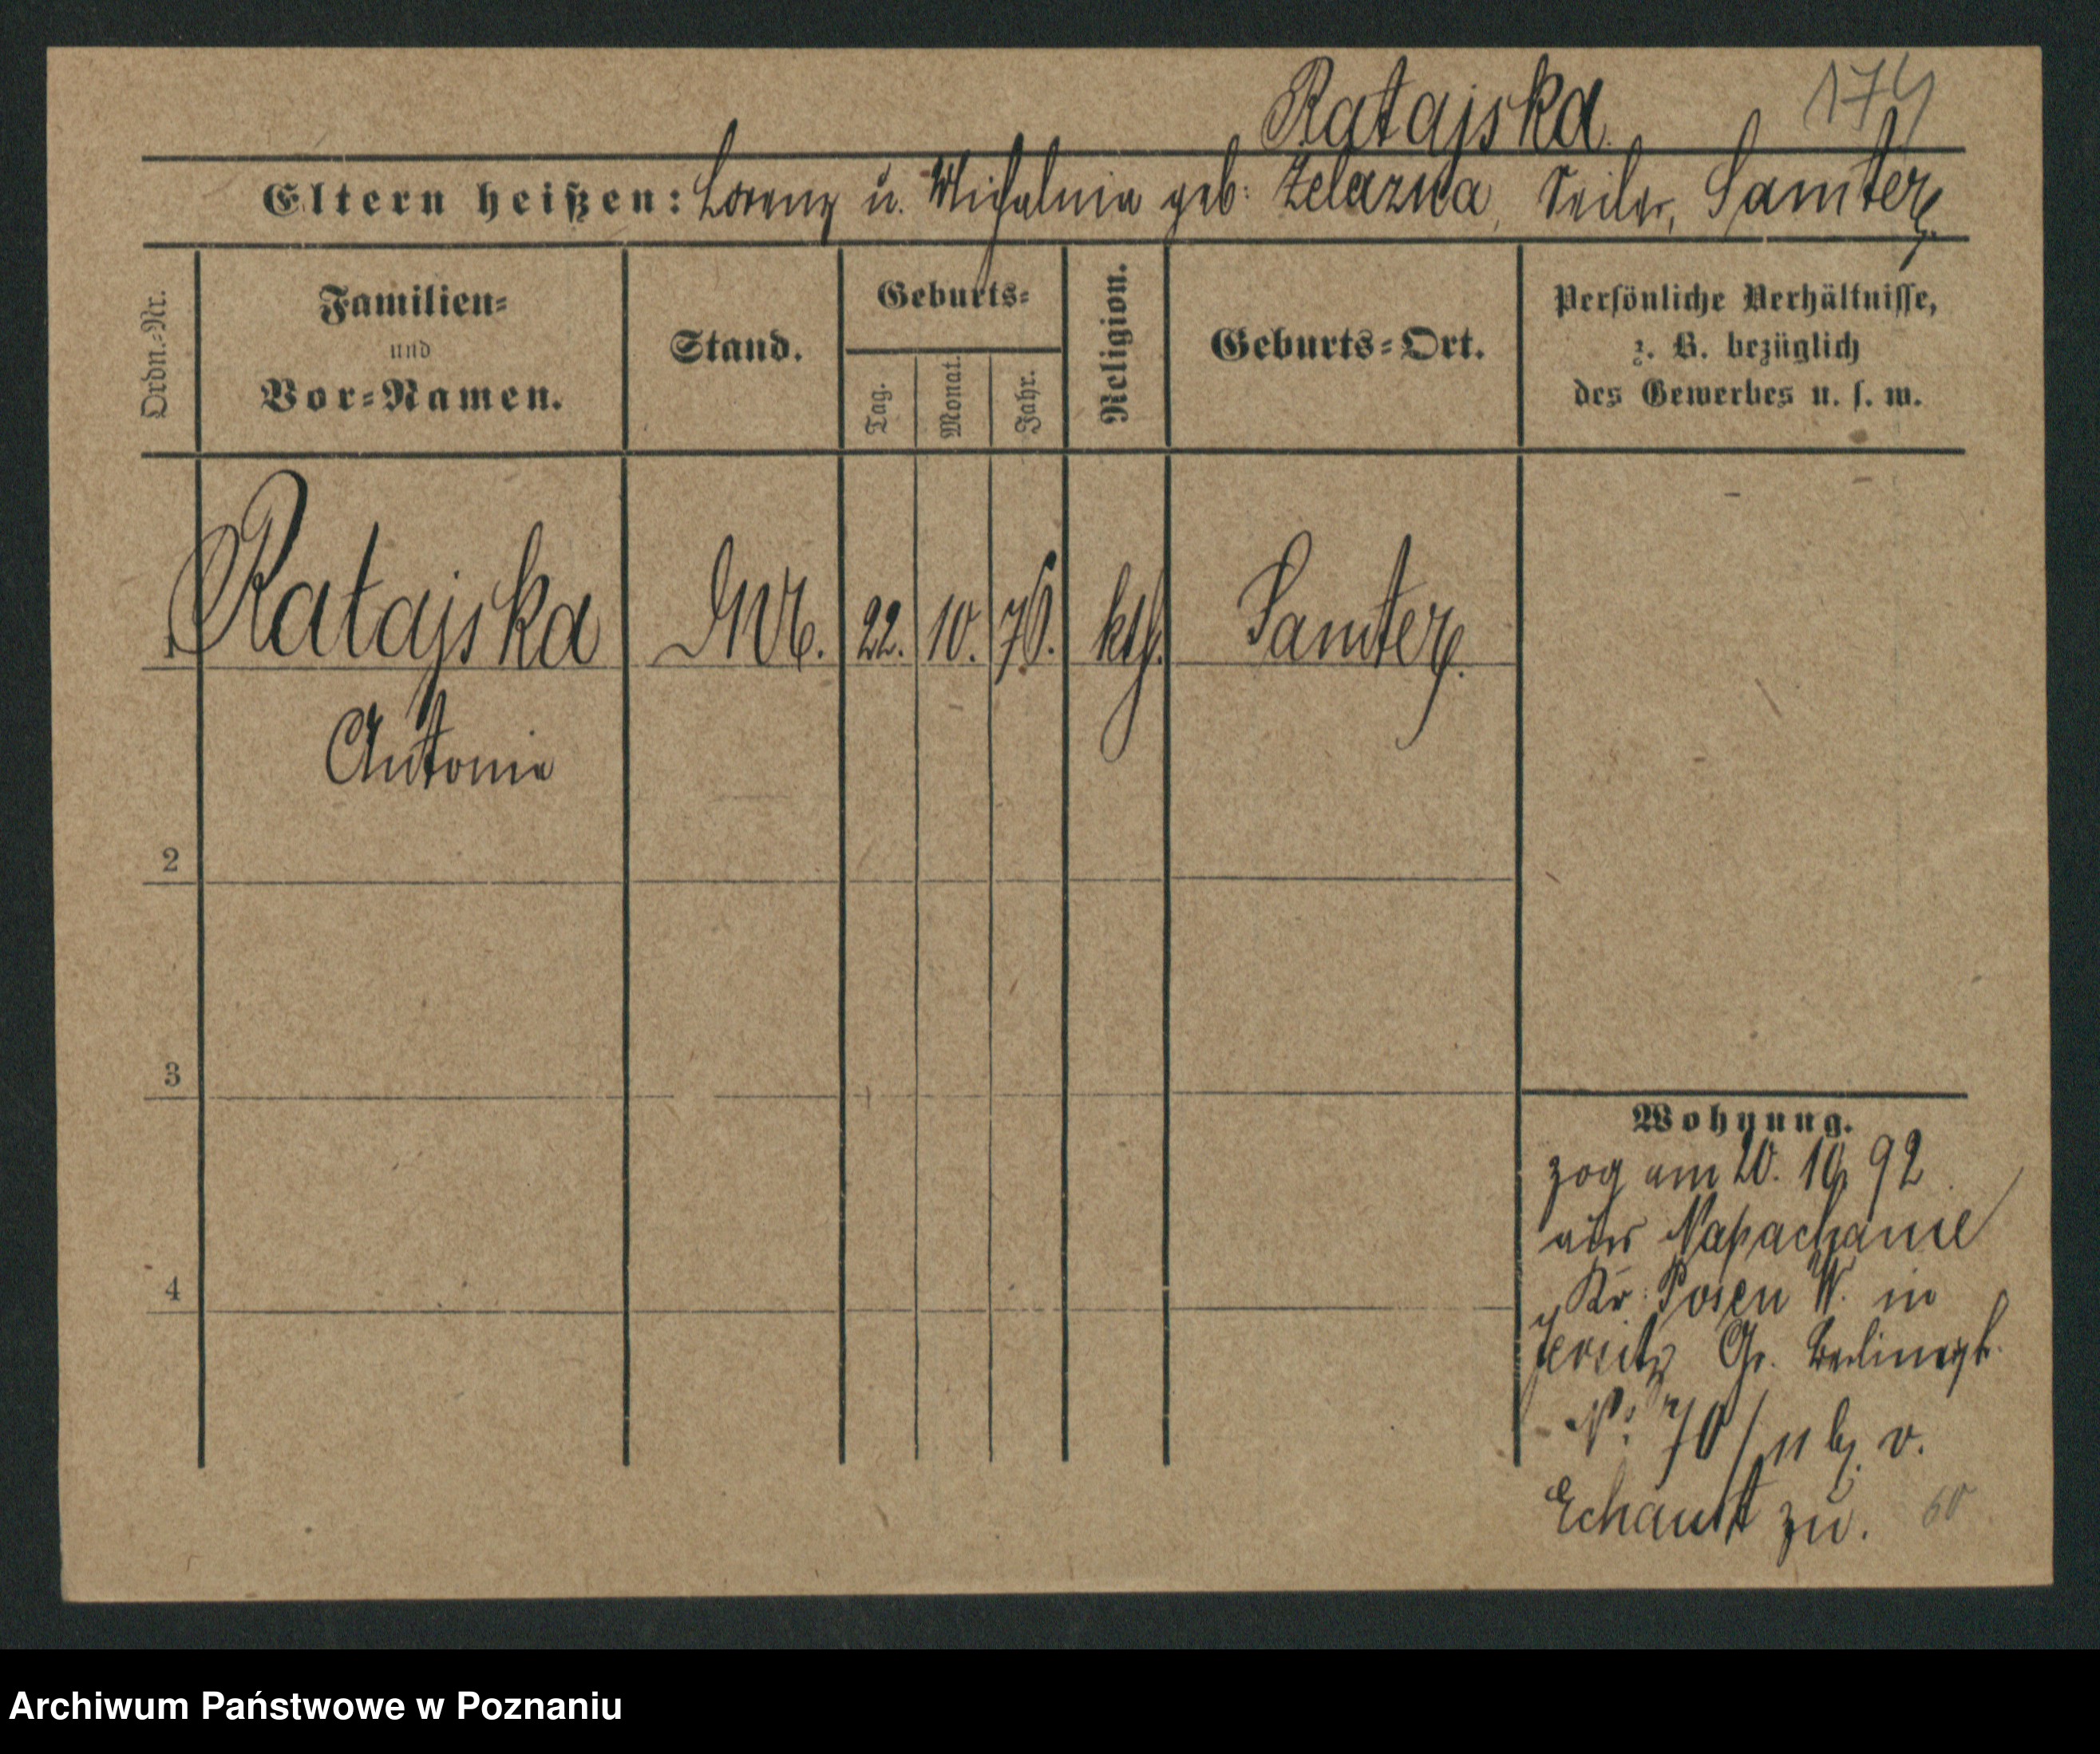 Ratajska. 174
Eltern heißen: Lorenz u. Michalina geb: Zelazna, Seiler, Samter,
Ordn.-Nr. Familien- und Vor-Namen. Stand. Geburts- Tag. Monat. Jahr. Religion. Geburts-Ort. Persönliche Verhältnisse, z. B. bezüglich des Gewerbes u. s. w.
1 Ratajska 22. 10. kth. Samter.
Antonie
2
3
4
Wohnung.
zog am 20. 10. 92
aus Napachanie
Kr. Posen W. in
Jersitz Gr. Berlinerstr.
N: 70/11 bj. v.
Echaust zu. 60
Archiwum Państwowe w Poznaniu